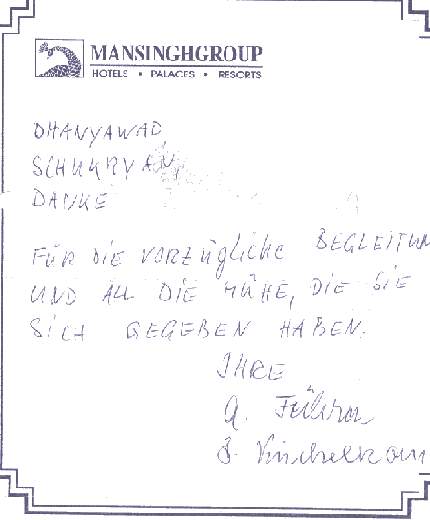 MANSINGHGROUP
HOTELS • PALACES • RESORTS
DHANYAWAD,
SCHUKRYAN,
DANKE
FÜR DIE VORZÜGLICHE BEGLEITUN
UND ALL DIE MÜHE, DIE SIE
SICH GEGEBEN HABEN.
IHRE